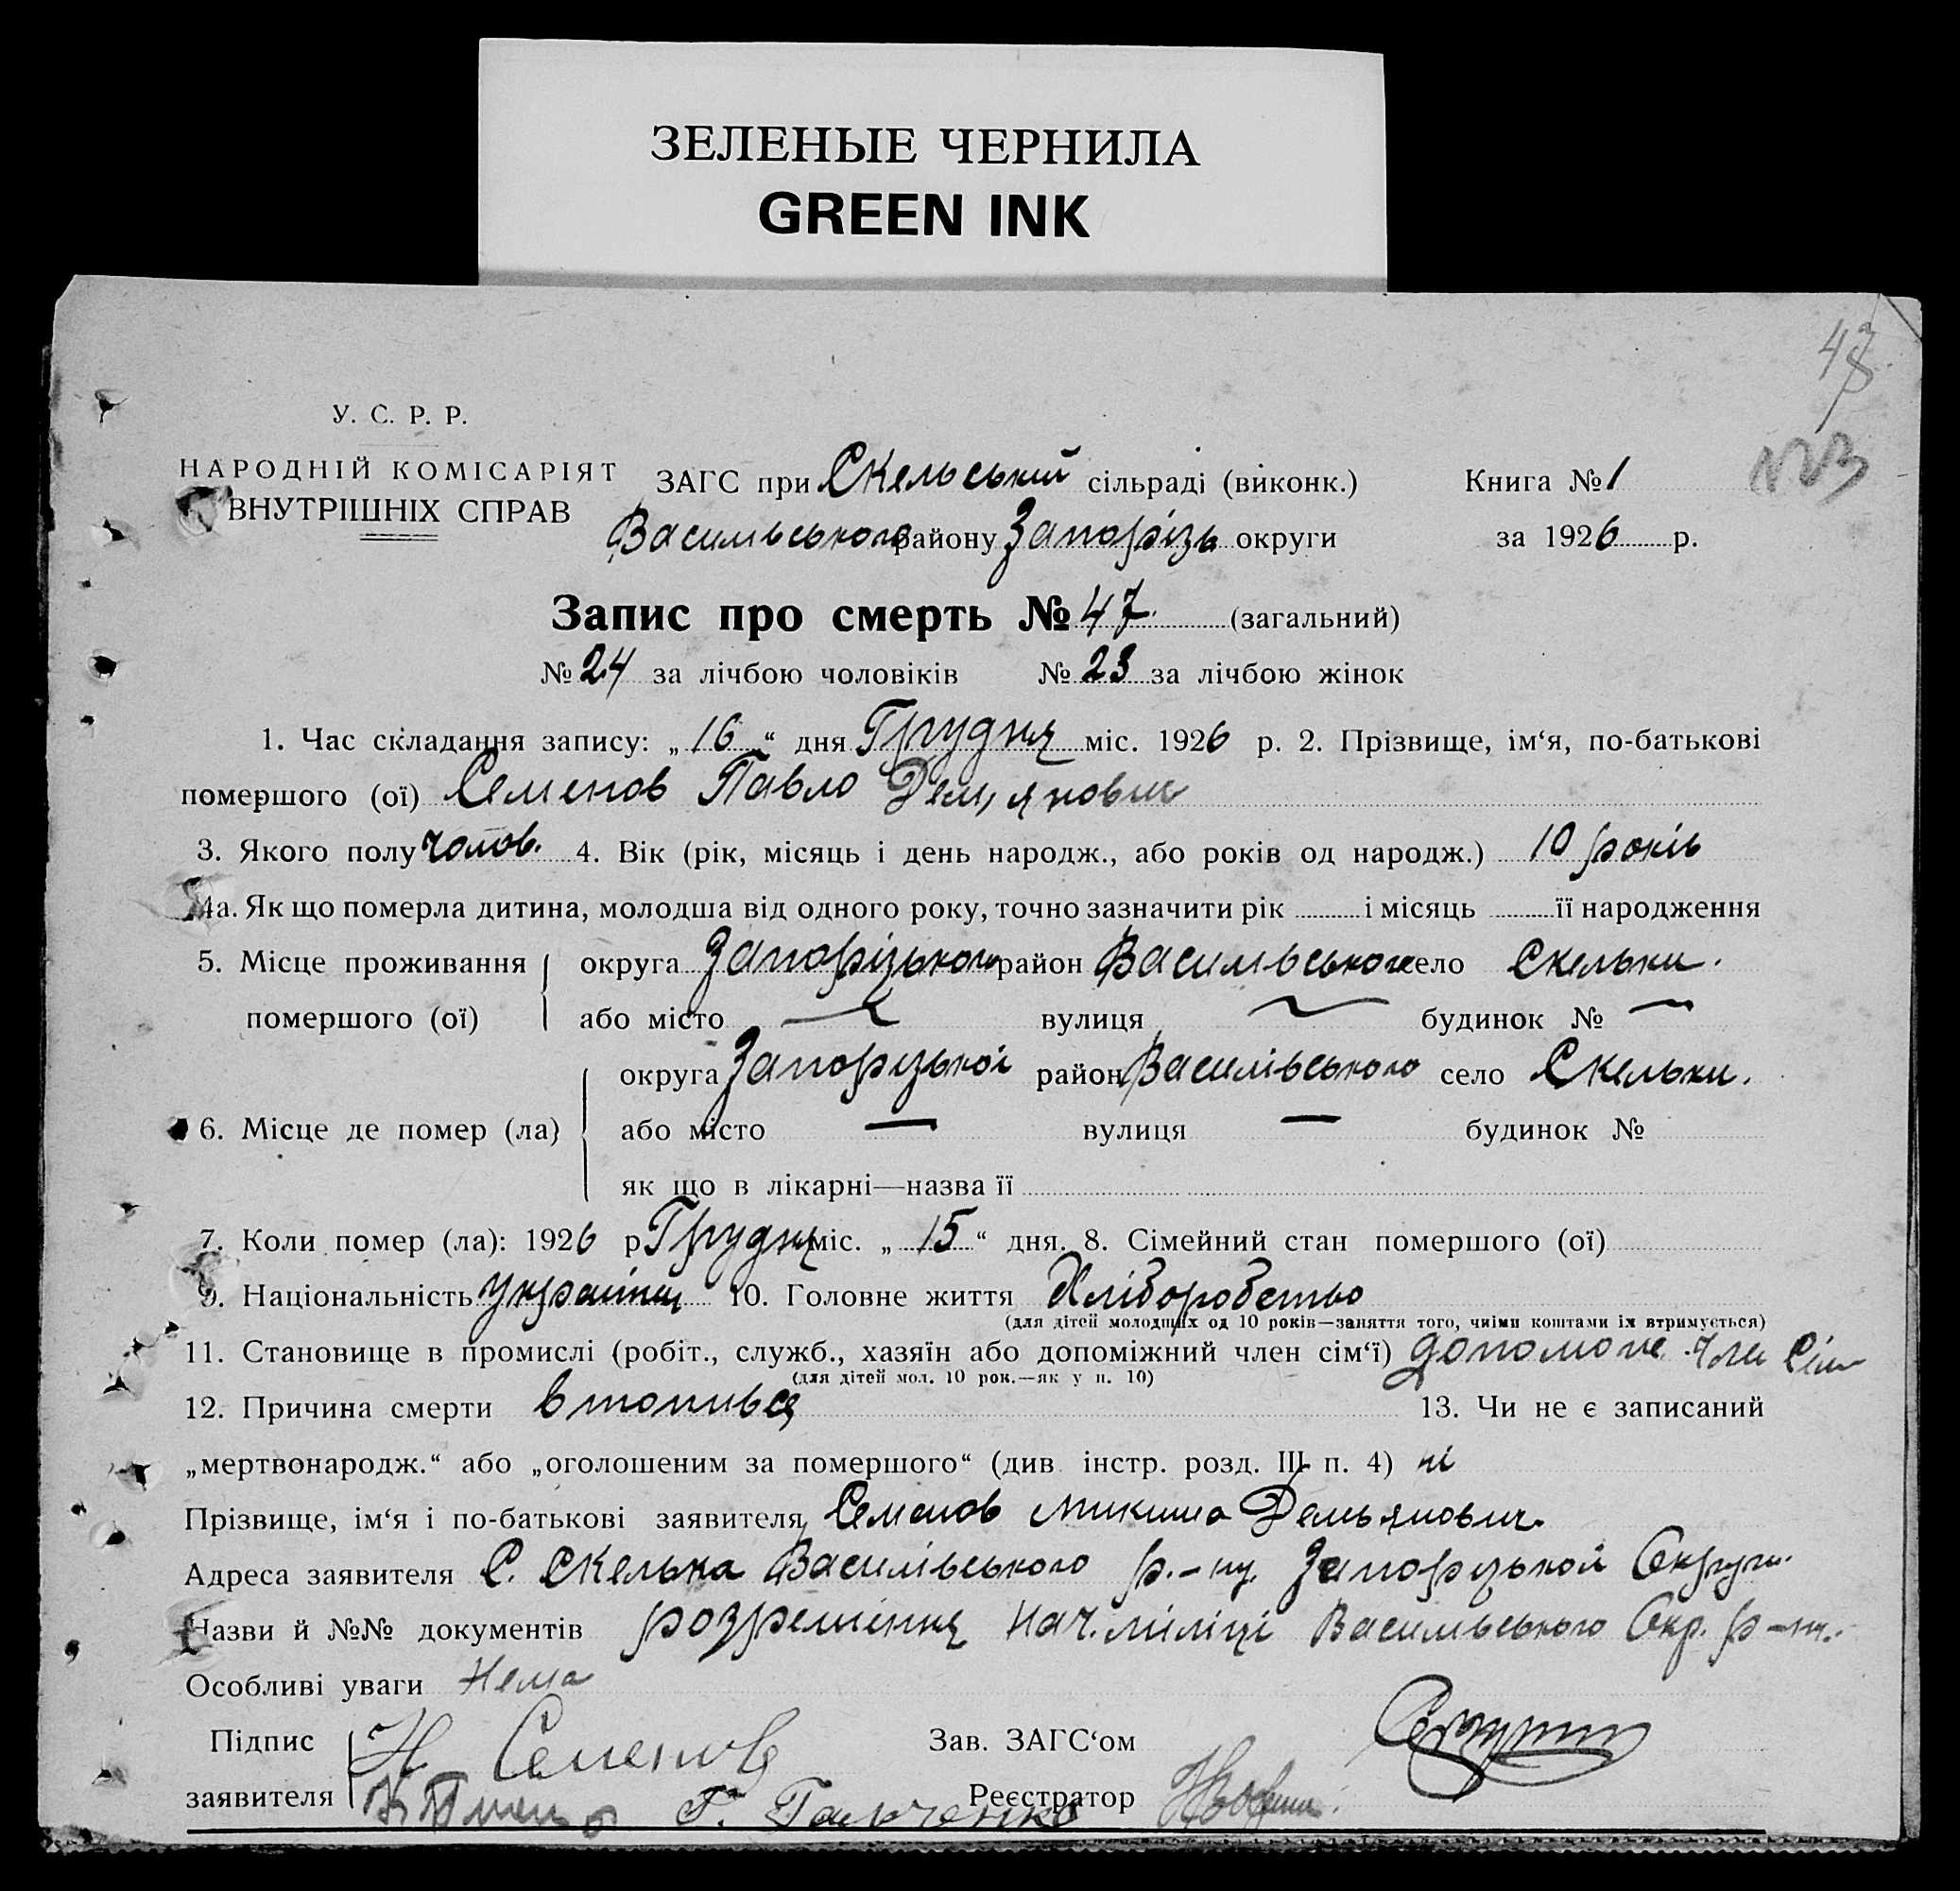 ЗЕЛЕНЫЕ ЧЕРНИЛА
GREEN INK
47
У. С. Р. Р.
НАРОДНІЙ КОМІСАРІЯТ
ВНУТРІШНІХ СПРАВ
ЗАГС при Скельський сільраді (виконк.) Книга № 1
Васильського району Запорізь округи за 1926 р.
Запис про смерть № 47 (загальний)
№ 24 за лічбою чоловіків № 23 за лічбою жінок
1. Час складання запису: „16“ дня Грудня міс. 1926 р. 2. Прізвище, ім‘я, по-батькові
помершого (ої) Семенов Павло Демянович
3. Якого полу чолов. 4. Вік (рік, місяць і день народж., або років од народж.) 10 років
4а. Як що померла дитина, молодша від одного року, точно зазначити рік і місяць її народження
5. Місце проживання округа Запорізького район Васильського село Скельки.
помершого (ої) або місто — вулиця — будинок № —
округа Запорізької район Василівського село Скельки.
6. Місце де помер (ла) або місто — вулиця — будинок №
як що в лікарні—назва її
7. Коли помер (ла): 1926 р Грудня міс. „15“ дня. 8. Сімейний стан помершого (ої)
9. Національність українец 10. Головне життя Хліборобство
(для дітей молодших од 10 років—заняття того, чиїми коштами їх втримується)
11. Становище в промислі (робіт., служб., хазяїн або допоміжний член сім‘ї) допоможе член Сім
(для дітей мол. 10 рок.—як у п. 10)
12. Причина смерти втопився 13. Чи не є записаний
„мертвонародж.“ або „оголошеним за помершого“ (див. інстр. розд. III п. 4) ні
Прізвище, ім‘я і по-батькові заявителя Семенов Микита Демьянович.
Адреса заявителя С. Скелька Василівського р.-ну. Запорізької Округи.
Назви й №№ документів розрешіння нач. міліції Васильського Окр. р-ну.
Особливі уваги Нема
Підпис Н Семенов Зав. ЗАГС‘ом
заявителя Г. Гальченко Реєстратор